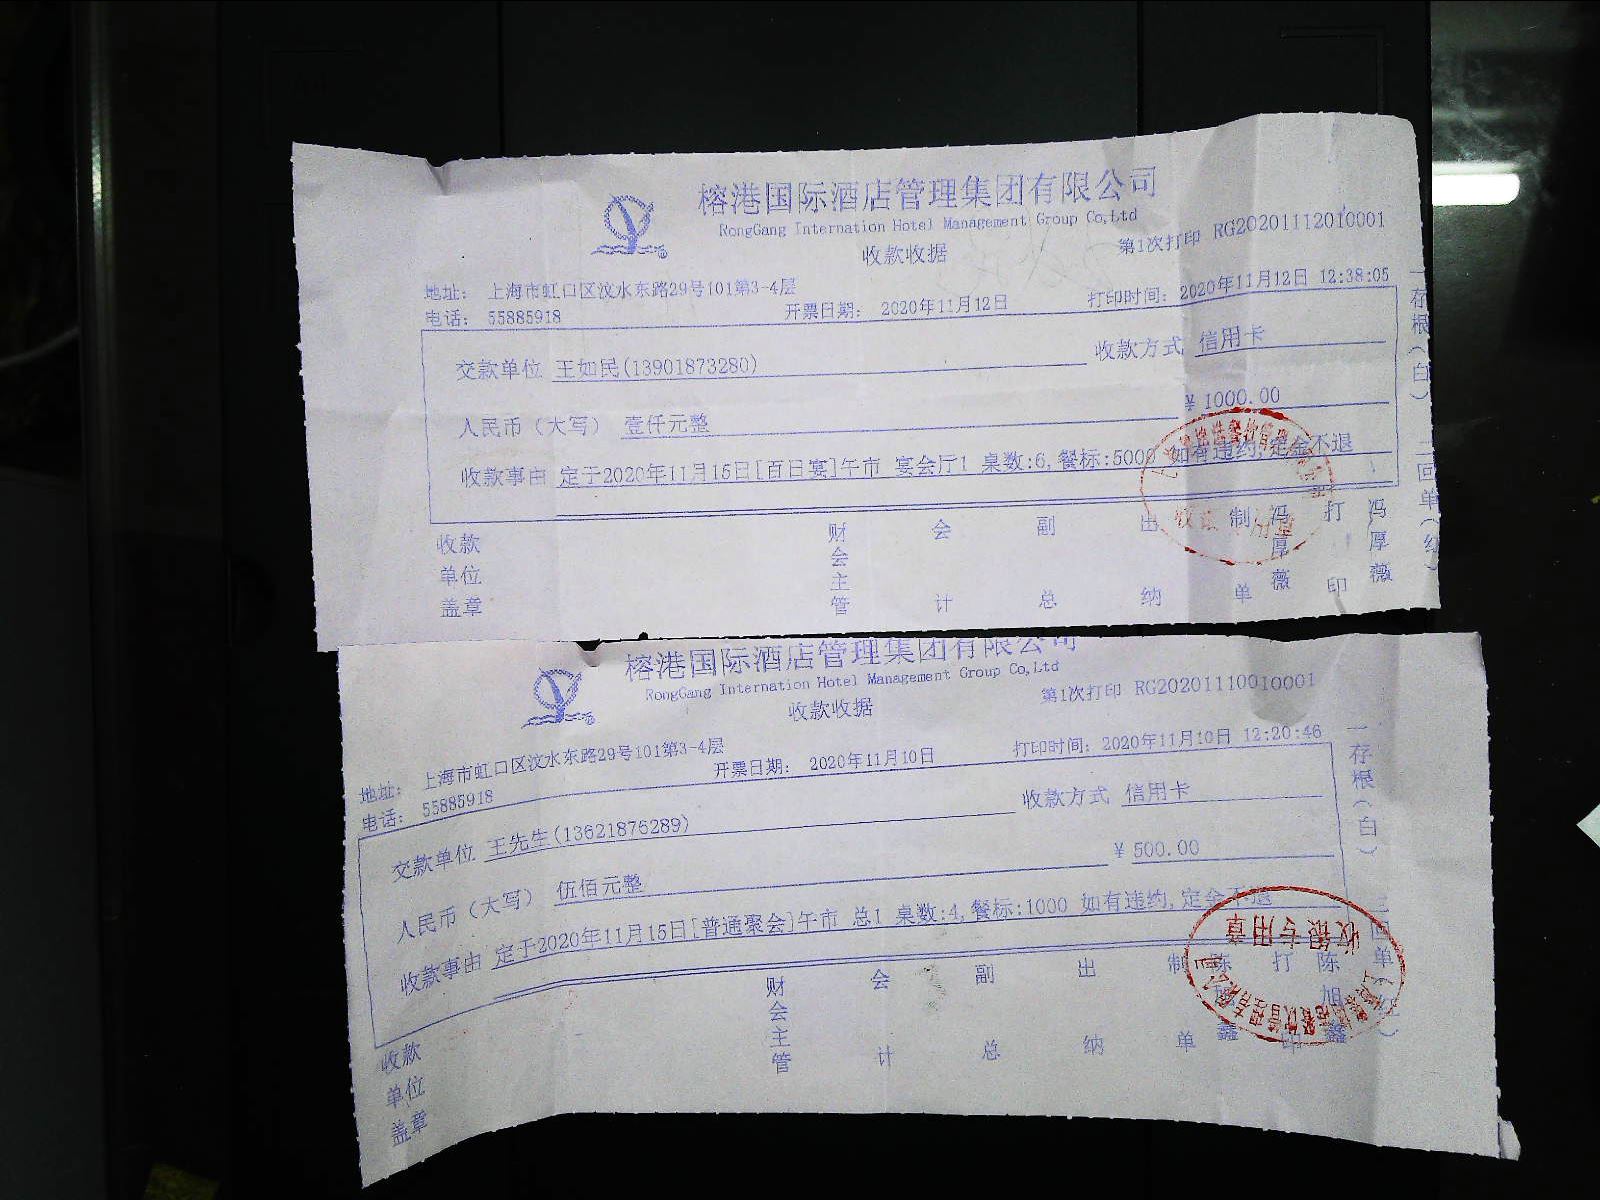 榕港国际酒店管理集团有限公司
RongGang Internation Hotel Management Group Co,Ltd
收款收据
第1次打印 RG20201112010001
地址： 上海市虹口区汶水东路29号101第3-4层
电话： 55885918
开票日期： 2020年11月12日
打印时间：2020年11月12日 12:38:05
交款单位 王如民(13901873280)
收款方式 信用卡
人民币（大写） 壹仟元整
¥ 1000.00
收款事由 定于2020年11月15日[百日宴]午市 宴会厅1 桌数:6,餐标:5000 如有违约,定金不退
收款单位盖章
财会主管
会计
副总
出纳
制单
冯厚薇
打印
冯厚薇
一存根(白)
二回单(红)
榕港国际酒店管理集团有限公司
RongGang Internation Hotel Management Group Co,Ltd
收款收据
第1次打印 RG20201110010001
地址： 上海市虹口区汶水东路29号101第3-4层
电话： 55885918
开票日期： 2020年11月10日
打印时间：2020年11月10日 12:20:46
交款单位 王先生(13621875289)
收款方式 信用卡
人民币（大写） 伍佰元整
¥ 500.00
收款事由 定于2020年11月15日[普通聚会]午市 总1 桌数:4,餐标:1000 如有违约,定金不退
收款单位盖章
财会主管
会计
副总
出纳
制单
陈旭鑫
打印
陈旭鑫
一存根(白)
二回单
收银专用章